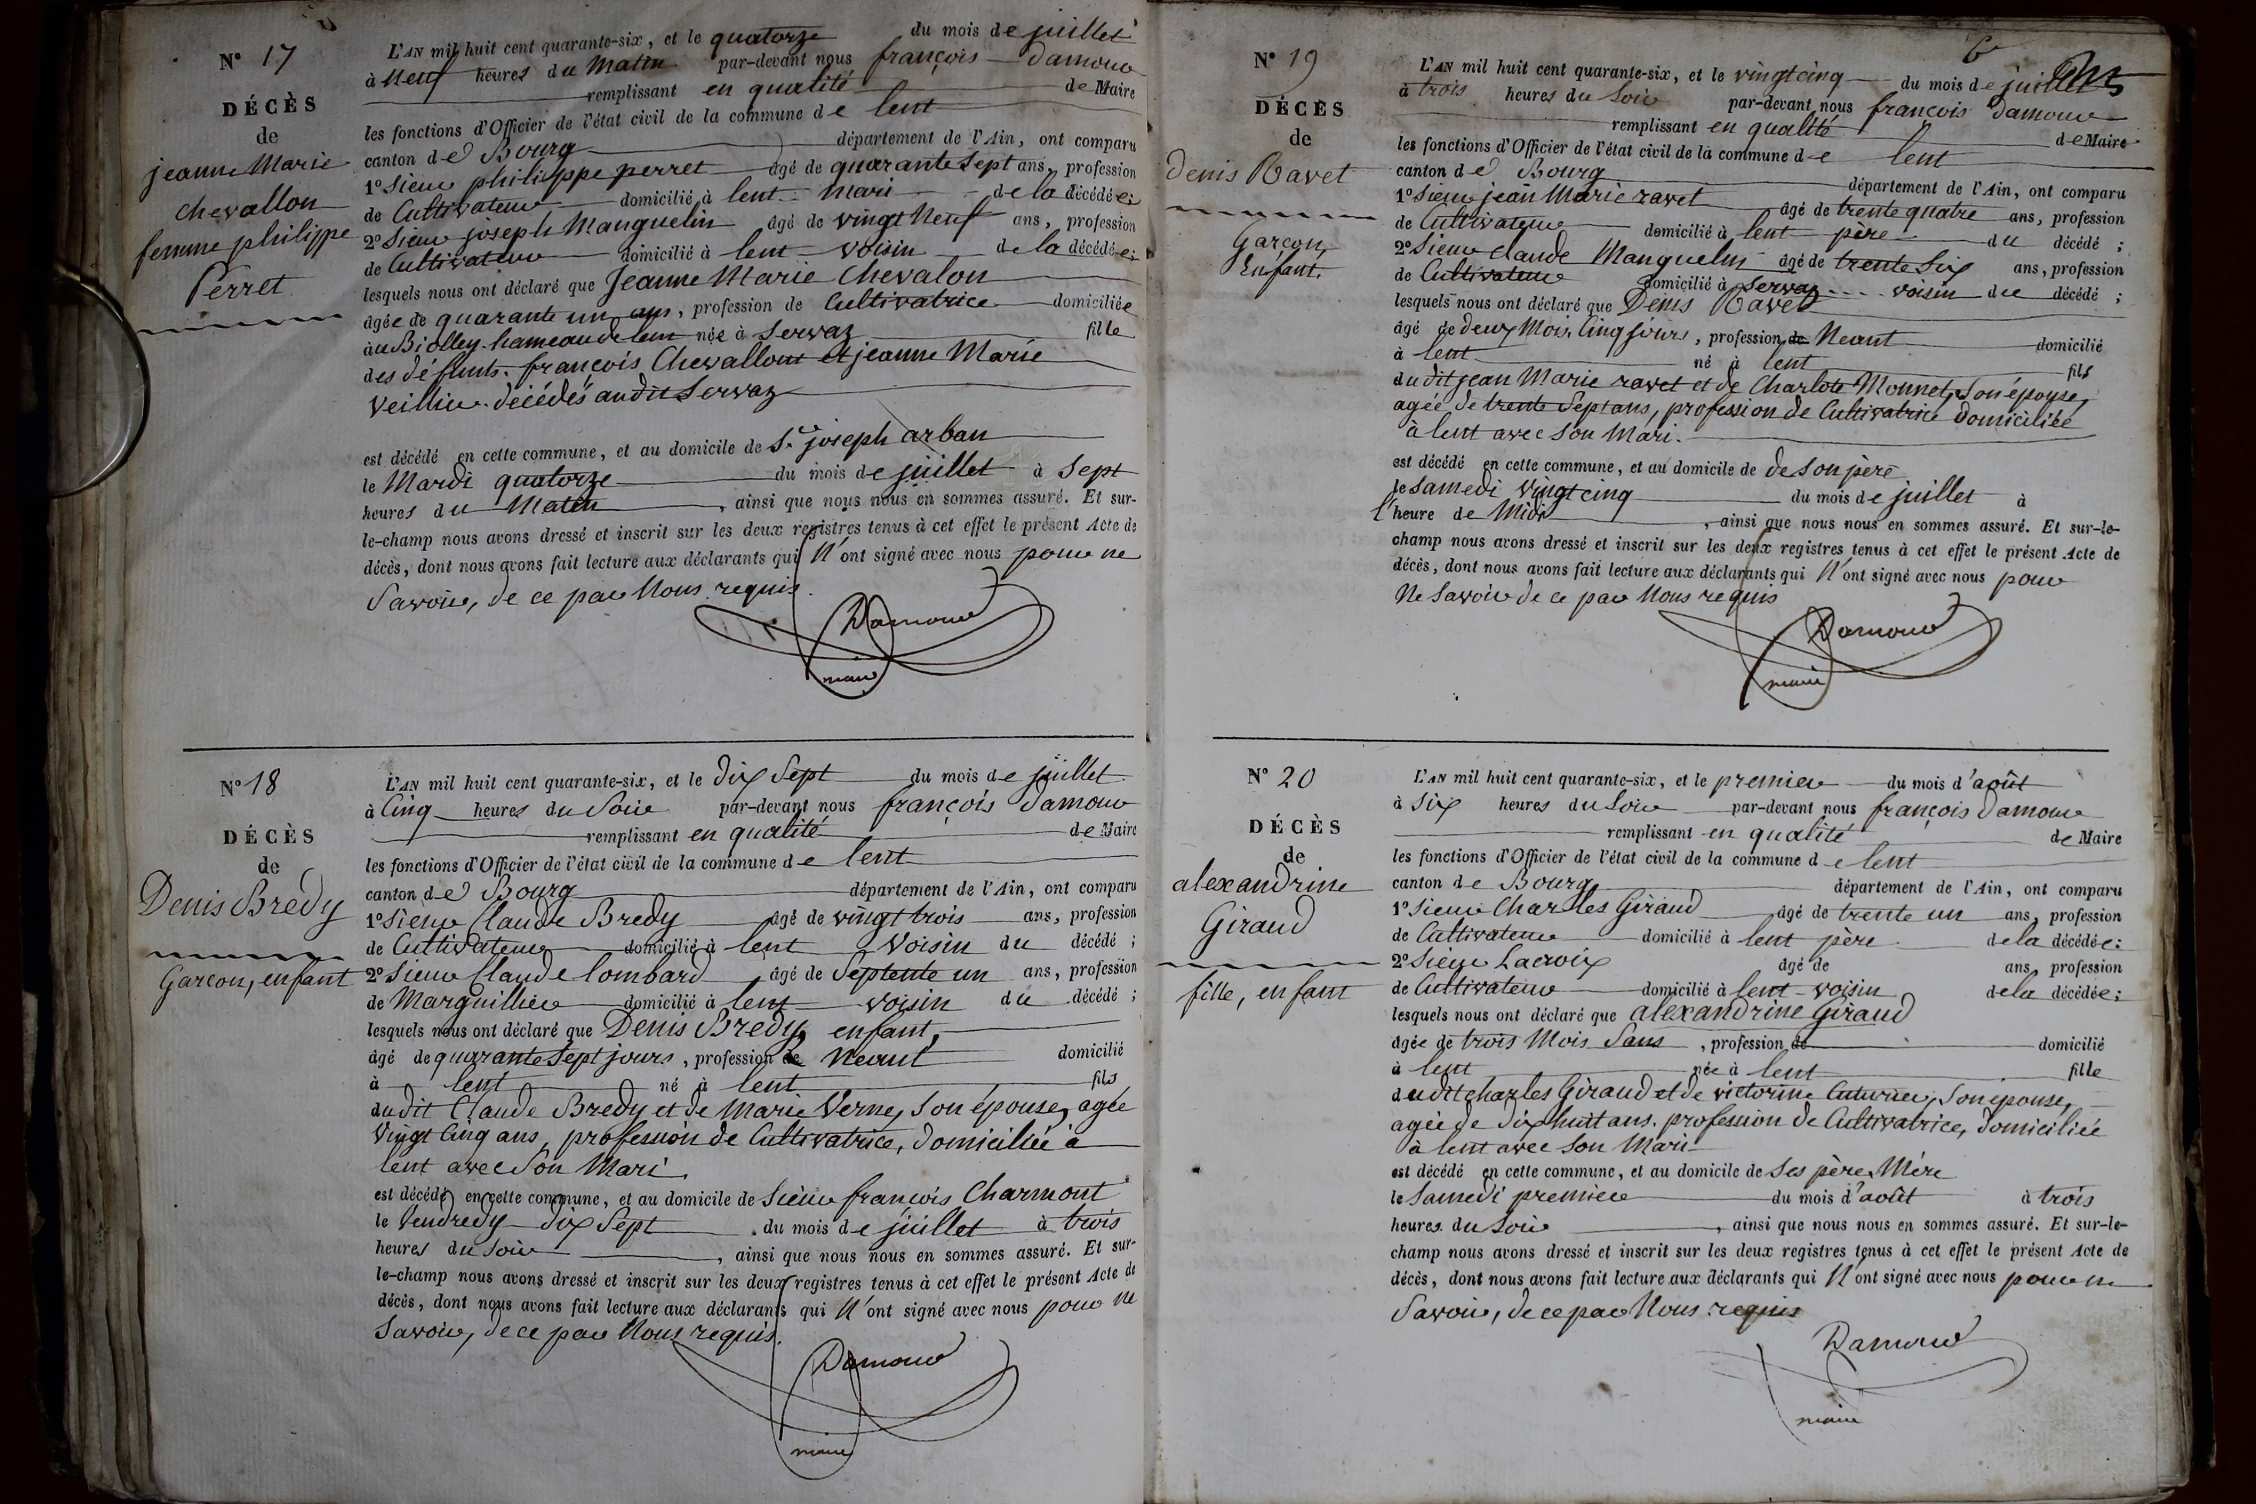 N° 17
DÉCÈS
de
jeanne Marie
chevallon
femme philippe
Perret
L'AN mil huit cent quarante-six, et le quatorze du mois de juillet
à Neuf heures du Matin par-devant nous françois Damour
remplissant en qualité de Maire
les fonctions d'Officier de l'état civil de la commune de lent
canton de Bourg département de l'Ain, ont comparu
1° Sieur philippe perret âgé de quarante sept ans, profession
de Cultivateur domicilié à lent mari de la décédée;
2° Sieur joseph Manguelin âgé de vingt Neuf ans, profession
de Cultivateur domicilié à lent voisin de la décédée;
lesquels nous ont déclaré que Jeanne Marie Chevalon
âgée de quarante un ans, profession de Cultivatrice domiciliée
au Biolley hameau de lent née à Servaz fille
des défunts françois Chevallon et jeanne Marie
décédés audit Servaz
est décédé en cette commune, et au domicile de S.r joseph arban
le Mardi quatorze du mois de juillet à Sept
heures du Matin, ainsi que nous nous en sommes assuré. Et sur-
le-champ nous avons dressé et inscrit sur les deux registres tenus à cet effet le présent Acte de
décès, dont nous avons fait lecture aux déclarants qui N'ont signé avec nous pour ne
Savoir, de ce par Nous requis.
Damour
maire
N° 18
DÉCÈS
de
Denis Bredy
Garcon, enfant
L'AN mil huit cent quarante-six, et le dix Sept du mois de juillet
à Cinq heures du Soir par-devant nous françois Damour
remplissant en qualité de Maire
les fonctions d'Officier de l'état civil de la commune de lent
canton de Bourg département de l'Ain, ont comparu
1° Sieur Claude Bredy âgé de vingt trois ans, profession
de Cultivateur domicilié à lent Voisin du décédé;
2° Sieur Claude lombard âgé de Septente un ans, profession
de Marguillier domicilié à lent voisin du décédé;
lesquels nous ont déclaré que Denis Bredy, enfant,
âgé de quarante Sept jours, profession de Neant domicilié
à lent né à lent fils
du dit Claude Bredy et de Marie Verne, Son épouse, agée
Vingt Cinq ans, profession de Cultivatrice, domiciliée à
lent avec Son Mari
est décédé en cette commune, et au domicile de Sieur françois Charmont
le Vendredy dix Sept du mois de juillet à trois
heures du Soir, ainsi que nous nous en sommes assuré. Et sur-
le-champ nous avons dressé et inscrit sur les deux registres tenus à cet effet le présent Acte de
décès, dont nous avons fait lecture aux déclarants qui N'ont signé avec nous pour Ne
Savoir, de ce par Nous requis.
Damour
maire
N° 19
DÉCÈS
de
Denis Ravet
Garçon,
Enfant.
L'AN mil huit cent quarante-six, et le vingt cinq du mois de juillet
à trois heures du Soir par-devant nous françois Damour
remplissant en qualité de Maire
les fonctions d'Officier de l'état civil de la commune de lent
canton de Bourg département de l'Ain, ont comparu
1° Sieur jean Marie ravet âgé de trente quatre ans, profession
de Cultivateur domicilié à lent père du décédé;
2° Sieur Claude Manguelin âgé de trente Six ans, profession
de Cultivateur domicilié à Servaz voisin du décédé;
lesquels nous ont déclaré que Denis Ravet
âgé de deux Mois, Cinq jours, profession de Neant domicilié
à lent né à lent fils
du dit jean Marie ravet et de Charlote Monnet, Son épouse,
agée de trente Sept ans, profession de Cultivatrice domiciliée
à lent avec Son Mari.
est décédé en cette commune, et au domicile de de Son père
le Samedi Vingt cinq du mois de juillet à
l'heure de Midi, ainsi que nous nous en sommes assuré. Et sur-le-
champ nous avons dressé et inscrit sur les deux registres tenus à cet effet le présent Acte de
décès, dont nous avons fait lecture aux déclarants qui N'ont signé avec nous pour
Ne Savoir de ce par Nous requis
Damour
maire
N° 20
DÉCÈS
de
alexandrine
Giraud
fille, enfant
L'AN mil huit cent quarante-six, et le premier du mois d'août
à Six heures du Soir par-devant nous françois Damour
remplissant en qualité de Maire
les fonctions d'Officier de l'état civil de la commune de lent
canton de Bourg département de l'Ain, ont comparu
1° Sieur Charles Giraud âgé de trente un ans, profession
de Cultivateur domicilié à lent père de la décédée;
2° Sieur Lacroix âgé de ans, profession
de Cultivateur domicilié à lent voisin de la décédée;
lesquels nous ont déclaré que alexandrine Giraud
âgée de trois Mois Sans, profession de domicilié
à lent née à lent fille
du dit Charles Giraud et de victorine Son épouse,
agée de dix huit ans. profession de Cultivatrice, domiciliée
à lent avec Son Mari
est décédé en cette commune, et au domicile de Ses père Mére
le Samedi premier du mois d'août à trois
heures du Soir, ainsi que nous nous en sommes assuré. Et sur-le-
champ nous avons dressé et inscrit sur les deux registres tenus à cet effet le présent Acte de
décès, dont nous avons fait lecture aux déclarants qui N'ont signé avec nous pour ne
Savoir, de ce par Nous requis
Damour
maire